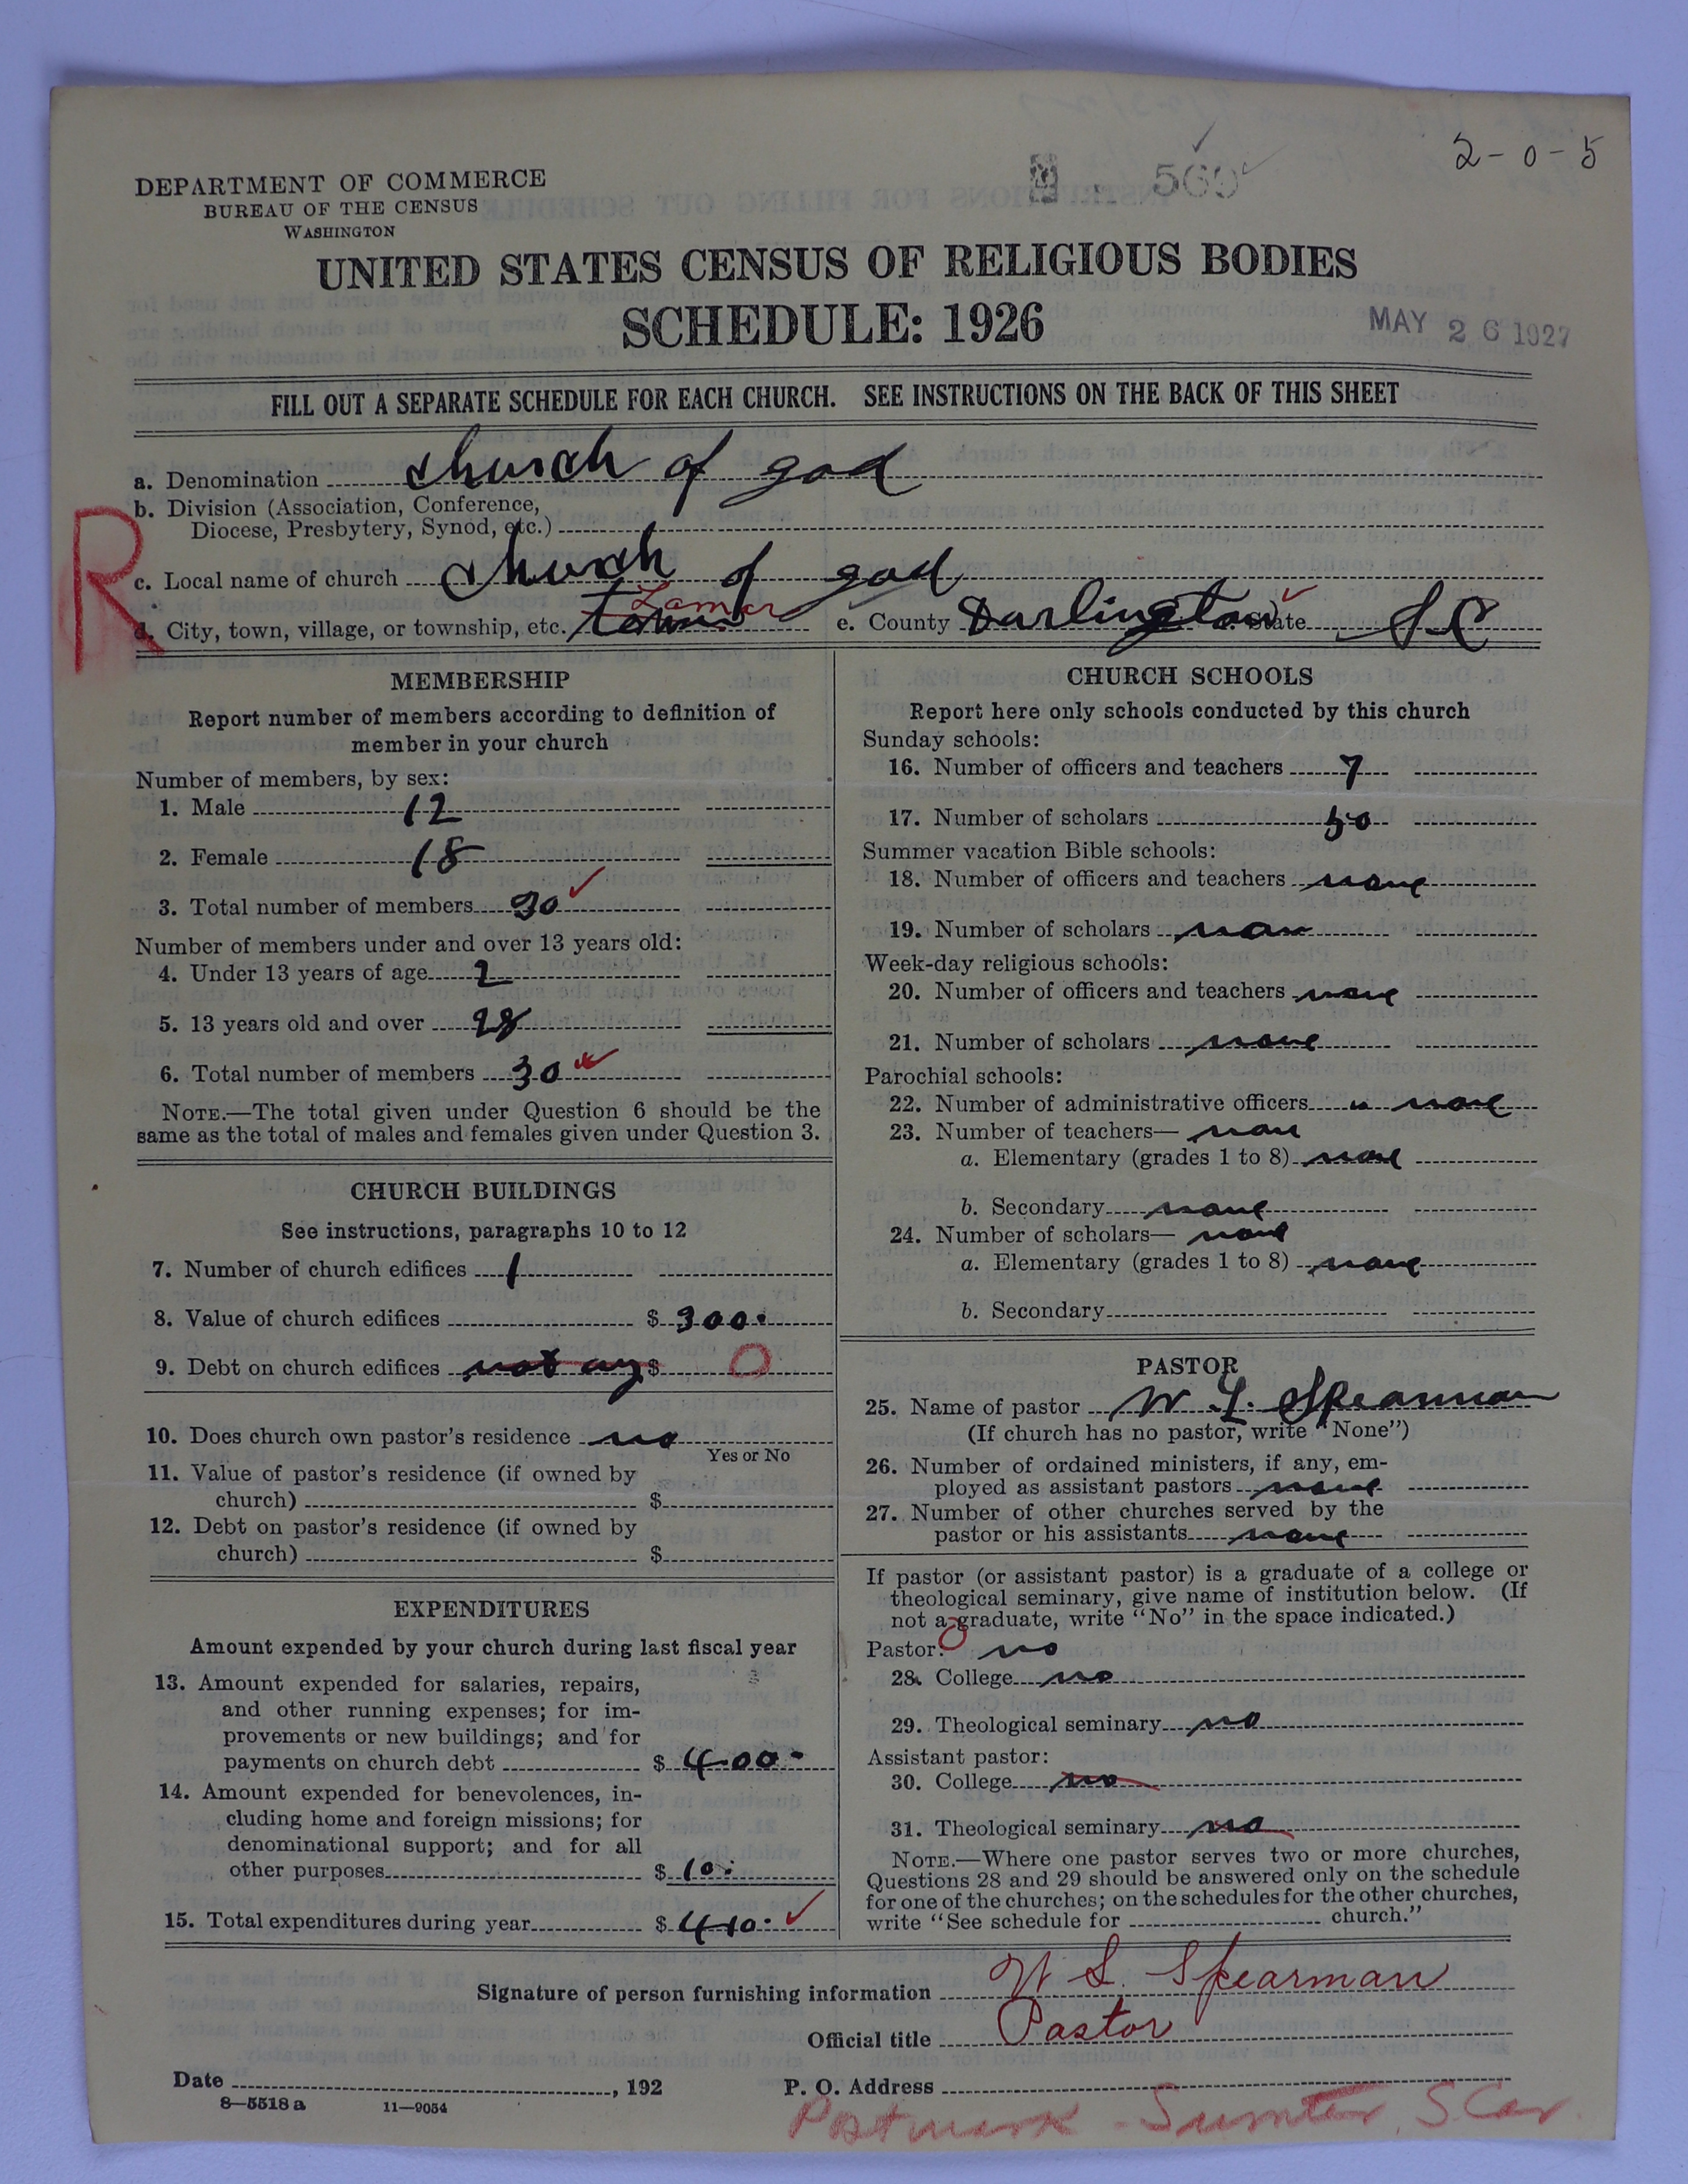 2-0-5
569
DEPARTMENT OF COMMERCE
BUREAU OF THE CENSUS
WASHINGTON
UNITED STATES CENSUS OF RELIGIOUS BODIES
SCHEDULE: 1926
MAY 26 1927
FILL OUT A SEPARATE SCHEDULE FOR EACH CHURCH. SEE INSTRUCTIONS ON THE BACK OF THIS SHEET
a. Denomination church of god
b. Division (Association, Conference,
Diocese, Presbytery, Synod, etc.)
R
c. Local name of church church of god
Lamar
d. City, town, village, or township, etc. town e. County Darlington State S C
MEMBERSHIP
Report number of members according to definition of
member in your church
Number of members, by sex:
1. Male 12
2. Female 18
3. Total number of members 30
Number of members under and over 13 years old:
4. Under 13 years of age 2
5. 13 years old and over 28
6. Total number of members 30
NOTE.—The total given under Question 6 should be the
same as the total of males and females given under Question 3.
CHURCH BUILDINGS
See instructions, paragraphs 10 to 12
7. Number of church edifices 1
8. Value of church edifices $ 300.
9. Debt on church edifices not any $ 0
10. Does church own pastor's residence no
Yes or No
11. Value of pastor's residence (if owned by
church) $
12. Debt on pastor's residence (if owned by
church) $
EXPENDITURES
Amount expended by your church during last fiscal year
13. Amount expended for salaries, repairs,
and other running expenses; for im-
provements or new buildings; and for
payments on church debt $ 400.
14. Amount expended for benevolences, in-
cluding home and foreign missions; for
denominational support; and for all
other purposes $ 10.
15. Total expenditures during year $ 410.
CHURCH SCHOOLS
Report here only schools conducted by this church
Sunday schools:
16. Number of officers and teachers 7
17. Number of scholars 50
Summer vacation Bible schools:
18. Number of officers and teachers none
19. Number of scholars non
Week-day religious schools:
20. Number of officers and teachers none
21. Number of scholars none
Parochial schools:
22. Number of administrative officers " none
23. Number of teachers— non
a. Elementary (grades 1 to 8) none
b. Secondary none
24. Number of scholars— none
a. Elementary (grades 1 to 8) none
b. Secondary
PASTOR
25. Name of pastor W. L. Spearman
(If church has no pastor, write "None")
26. Number of ordained ministers, if any, em-
ployed as assistant pastors none
27. Number of other churches served by the
pastor or his assistants none
If pastor (or assistant pastor) is a graduate of a college or
theological seminary, give name of institution below. (If
not a graduate, write "No" in the space indicated.)
Pastor: 0 no
28. College no
29. Theological seminary no
Assistant pastor:
30. College no
31. Theological seminary no
NOTE.—Where one pastor serves two or more churches,
Questions 28 and 29 should be answered only on the schedule
for one of the churches; on the schedules for the other churches,
write "See schedule for church."
Signature of person furnishing information W L. Spearman
Official title Pastor
Date , 192 P. O. Address
8—5518 a 11—9054
Postmark - Sumter, S. Car.